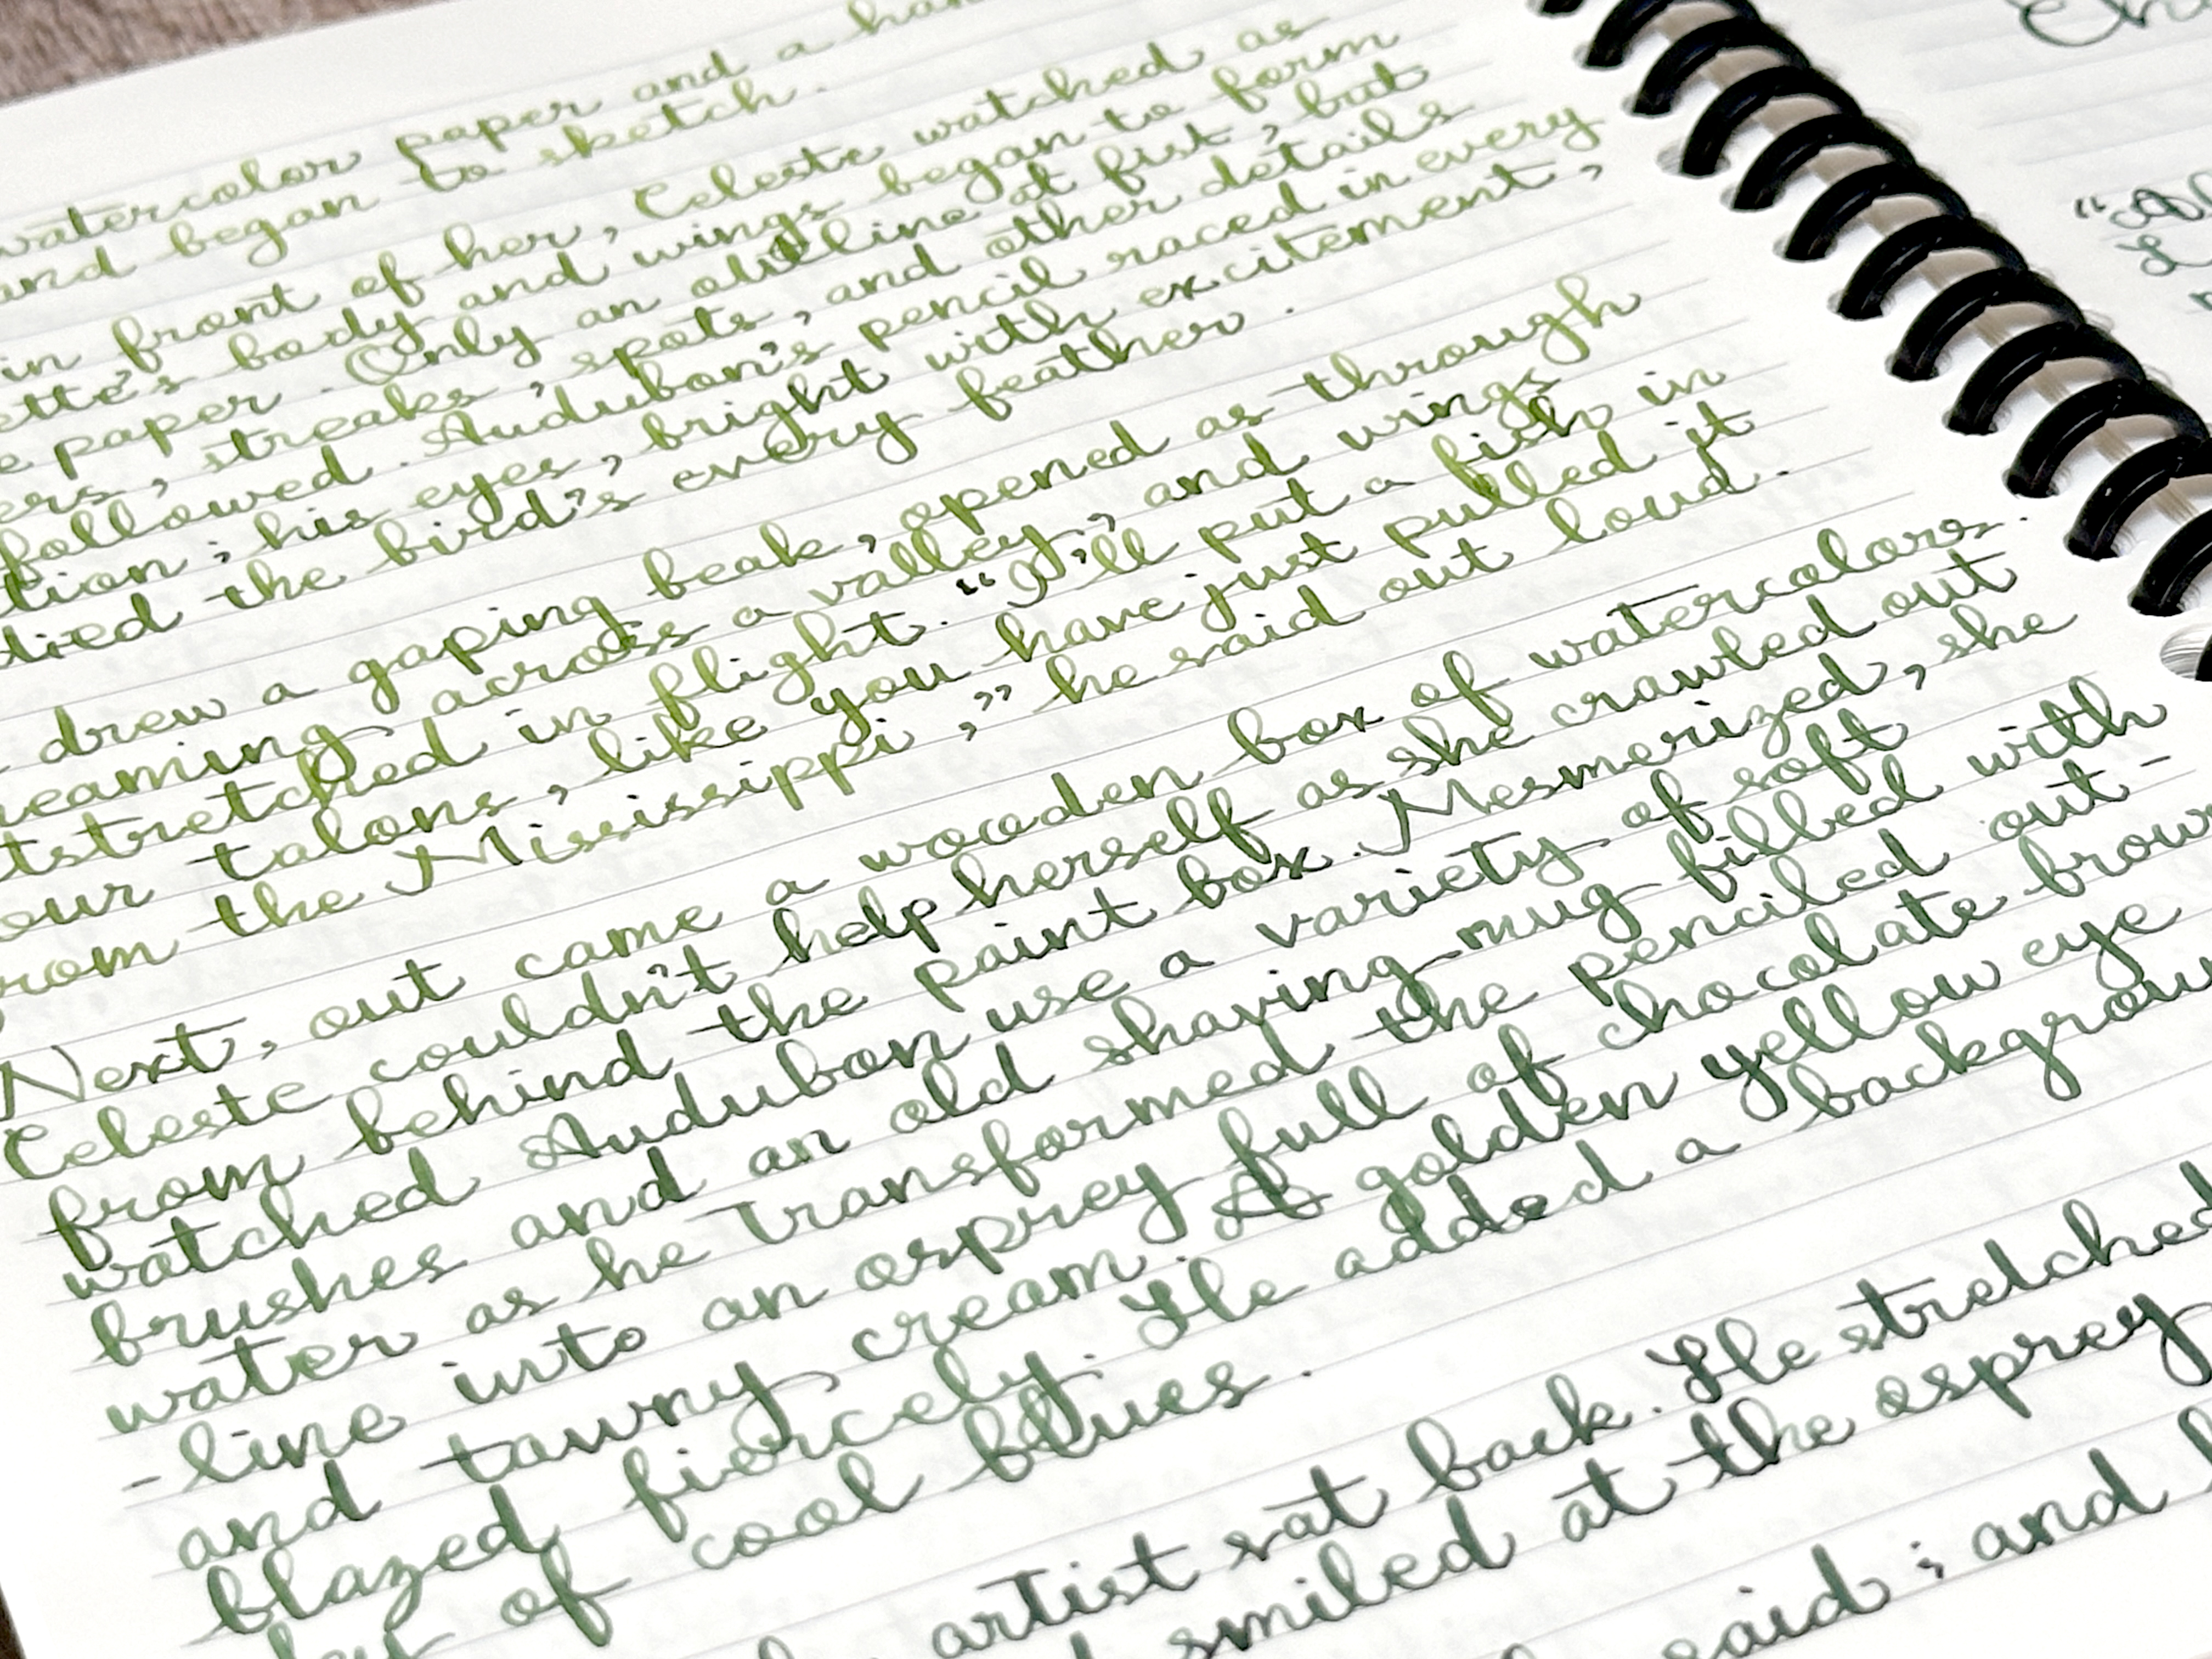 watercolor paper and a
and began to sketch.
in front of her, Celeste watched as
ette's body and wings began to form
e paper. Only an outline at fist, but
ers, streaks, spots, and other details
followed. Audubon's pencil raced in every
tion; his eyes, bright with excitement,
died the bird's every feather.
drew a gaping beak, opened as through
reaming across a valley, and wings
tstretched in flight. "I'll put a fish in
our talons, like you have just pulled it
rom the Mississippi," he said out loud.
Next, out came a wooden box of watercolors.
Celeste couldn't help herself as she crawled out
from behind the paint box. Mesmerized, she
watched Audubon use a variety of soft
brushes and an old shaving-mug filled with
water as he transformed the penciled out-
-line into an osprey full of chocolate brow
and tawny cream. A golden yellow eye
blazed fiercely. He added a backgrou
of cool blues.
artist sat back. He stretched
smiled at the osprey
said; and